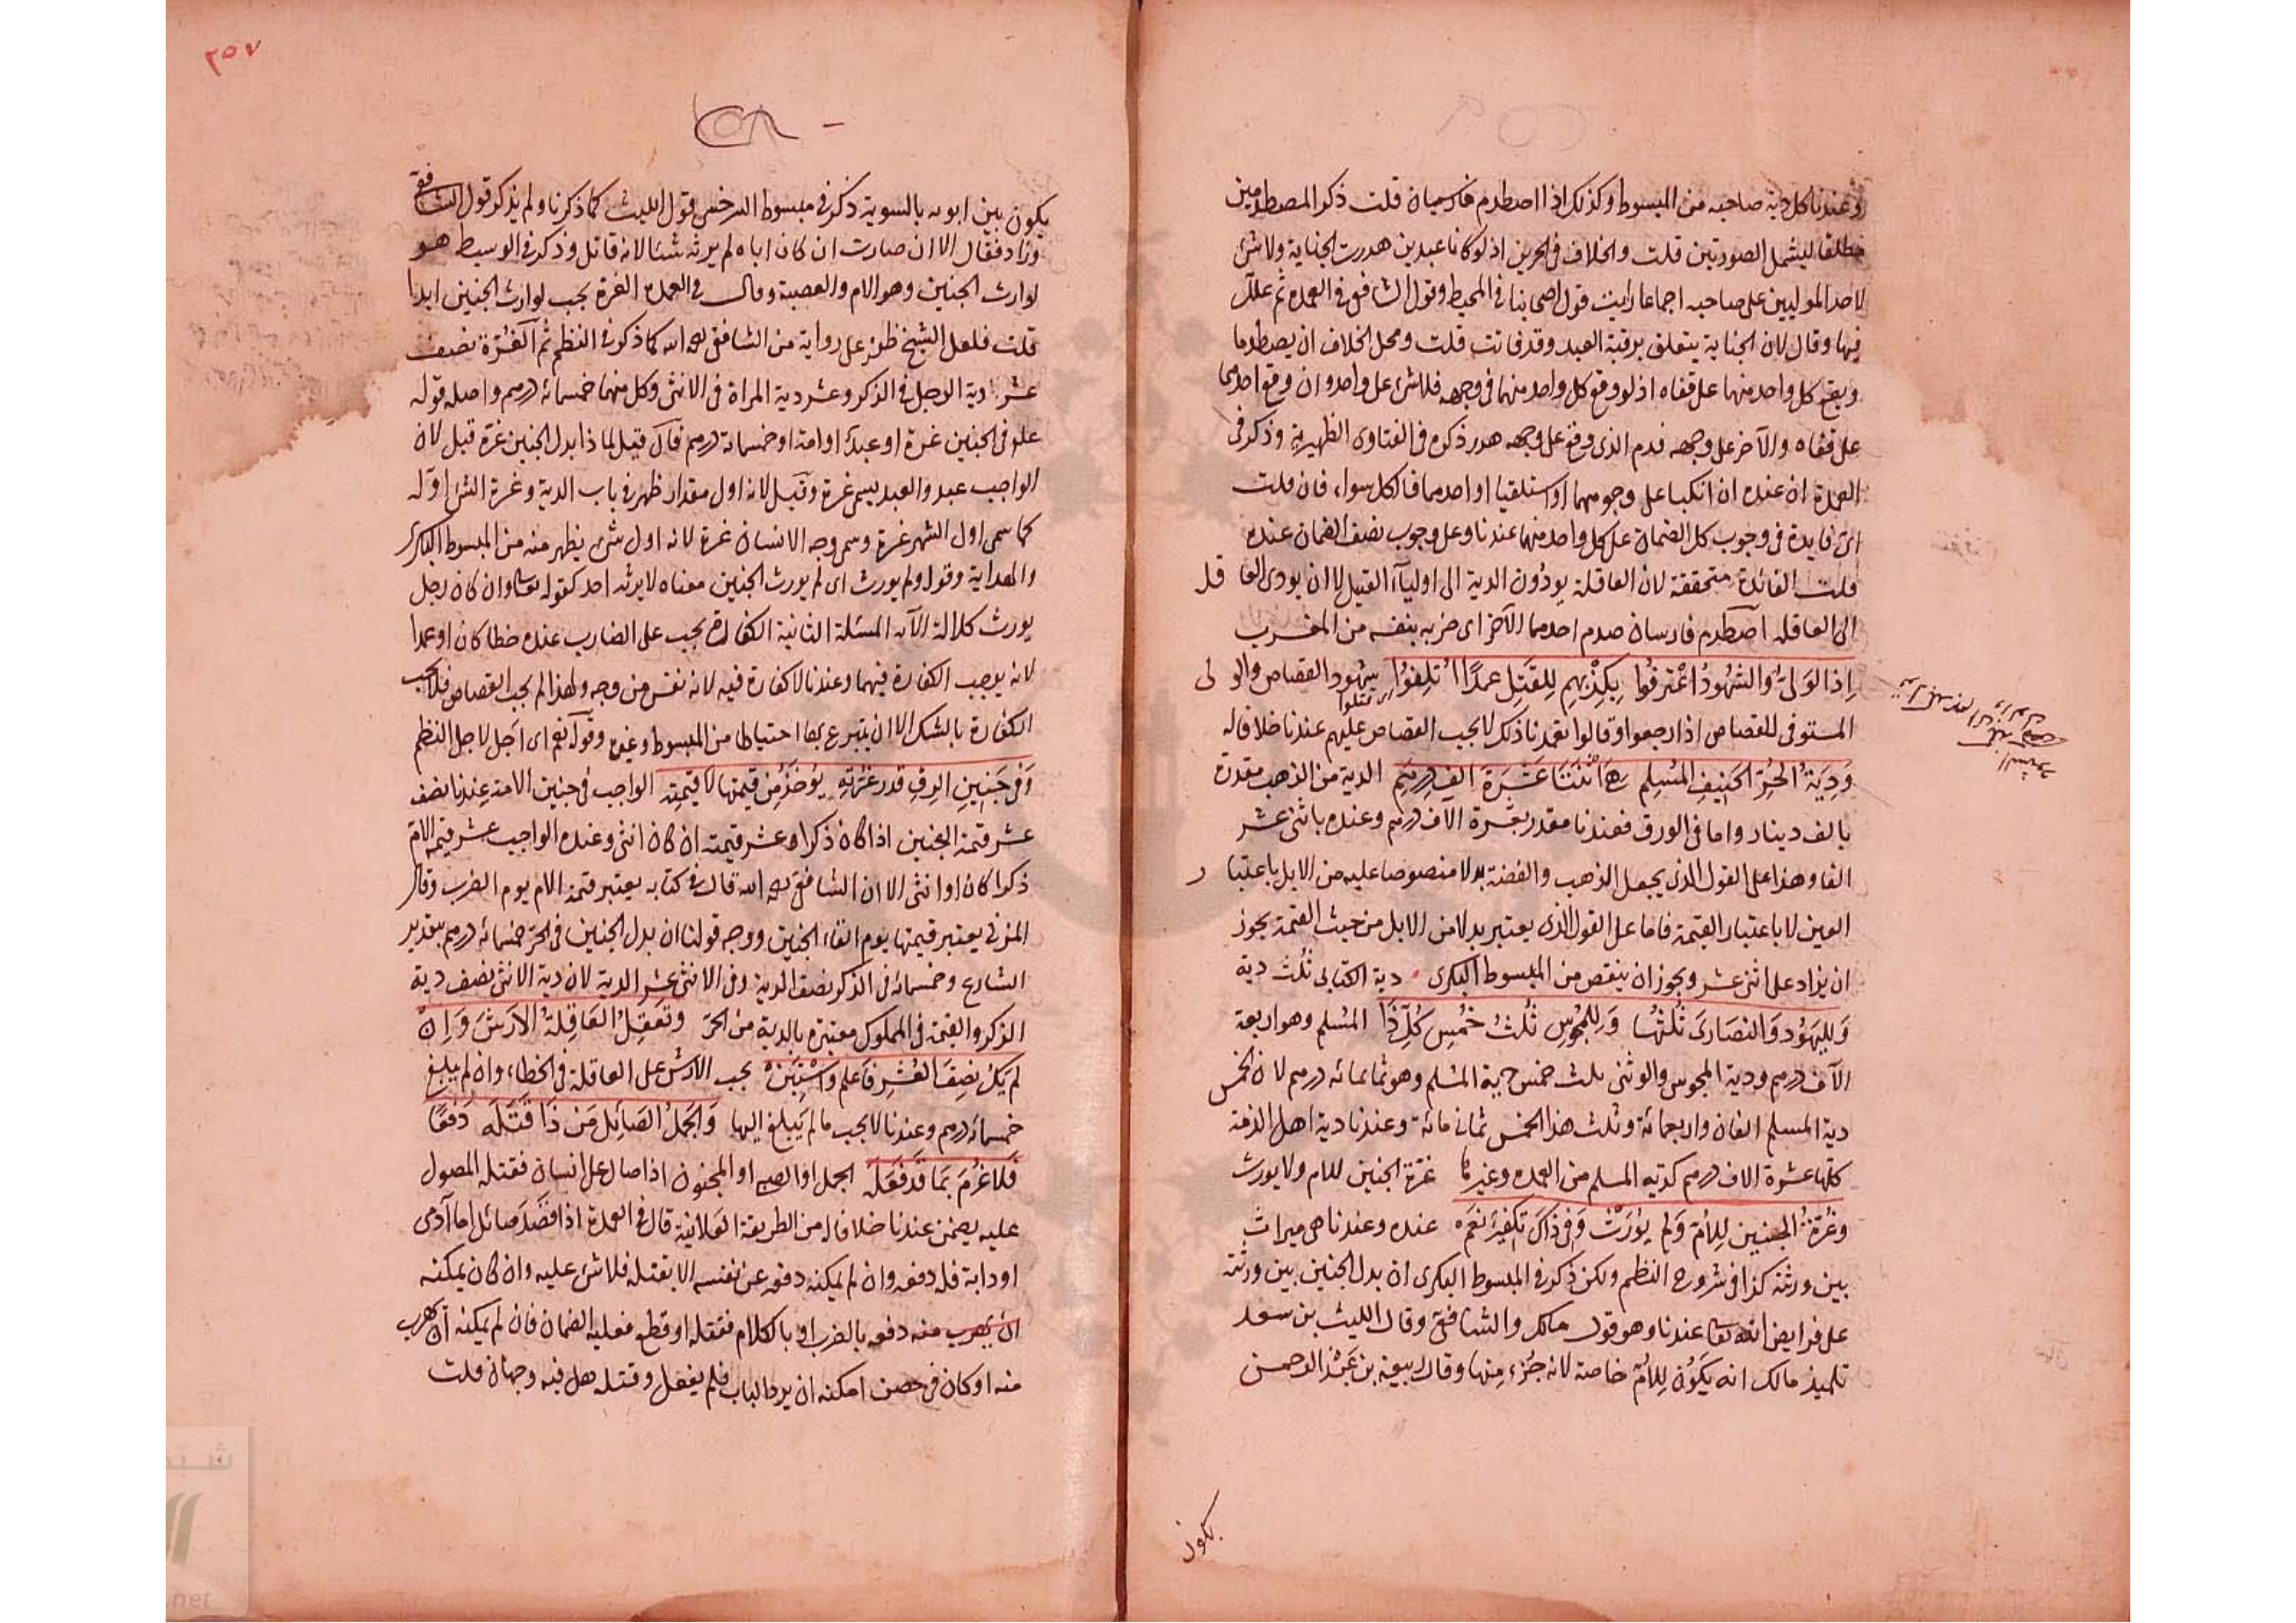 وعندنا كل دية صاحبه من المبسوط وكذلك اذا اصطدم فارسان قلت ذكر المصطدمين
مطلقا ليشمل الصورتين قلت والخلاف في الحرين اذ لو كانا عبدين هدرت الجناية ولا شئ
لاحد الموليين على صاحبه اجماعا رايت قول اصحابنا في المحيط وقول الشافعي في العمدة ثم علل
فيها وقال لان الجناية يتعلق برقبة العبد وقد فاتت قلت ومحل الخلاف ان يصطدما
ويقع كل واحد منهما على قفاه اذ لو وقع كل واحد منهما في وجهه فلا شئ على واحد وان وقع احدهما
على قفاه والآخر على وجهه فدم الذي وقع على وجهه هدر ذكره في الفتاوى الظهيرية وذكر في
العمدة ان عنده ان انكبا على وجوههما او استلقيا او احدهما فالكل سواء فان قلت
اي فايدة في وجوب كل الضمان على كل واحد منهما عندنا وعلى وجوب نصف الضمان عنده
قلت الفائدة متحققة لان العاقلة يودون الدية الى اولياء القتيل لا ان يودى العاقل
الى العاقله اصطدم فارسان صدم احدهما الآخر اى ضربه بنفسه من المغرب
اِذا الوَلىُّ والشُّهُودُ اعْتَرفُوا بِكِذْبِهِم لِلقَتلِ عمدًا اُتلِفوُا شهود القصاص والولى
المستوفى للقصاص اذا رجعوا وقالوا تعمدنا ذلك لا يجب القصاص عليهم عندنا خلافا له
وَدِيَةُ الحُرِّ الحنيفِ المُسْلِمِ هي اثْنَتَا عَشَرَةَ الفِ درهَمِ الدية من الذهب مقدرة
بالف دينار واما في الورق فعندنا مقدر بعشرة الاف درهم وعنده باثنى عشر
الفا وهذا على القول الذى يجعل الذهب والفضة بدلا منصوصا عليه من الابل باعتبار
العين لا باعتبار القيمة فاما على القول الذى يعتبر بدلا من الابل من حيث القيمة يجوز
ان يزاد على اثنى عشر ويجوز ان ينقص من المبسوط البكرى دية الكتابى ثلث دية
وَلِليَهُود وَالنصَارَى ثُلثُهَا وَلِلمجُوسِ ثُلثُ خُمْسِ كُلّ ذَا المُسْلم وهو اربعة
الآف درهم ودية المجوس والوثنى ثلث خمس دية المسلم وهو ثمانمائه درهم لان الخمس
دية المسلم الفان واربعمائة وثلث هذا الخمس ثمان مائة وعندنا دية اهل الذمة
كلها عشرة الاف درهم كدية المسلم من العمده وغيرها غرة الجنين للام ولا يورث
وغُرّةُ الجنين لِلاُمّ وَلم يُورَثْ وَفى ذَاكَ تكفيرٌ نَعَم عنده وعندنا هى ميراث
بين ورثته كذا في شروح النظم ولكن ذكر في المبسوط البكرى ان بدل الجنين بين ورثته
على فرايض الله تعالى عندنا وهو قول مالك والشافعى وقال الليث بن سعد
تلميذ مالك انه يَكُونُ لِلاُمّ خاصة لانه جُزْء مِنها وقال ربيعة بن عَبْد الرحمن
يكون
٢٥٧
يكون بين ابويه بالسوية ذكر في مبسوط السرخسى قول الليث كما ذكرنا ولم يذكر قول الشافعى
وزاد فقال الا ان صارت ان كان اباه لم يرثه شئا لانه قاتل وذكر في الوسيط هو
لوارث الجنين وهو الام والعصبة وقال في العمدة الغرة يجب لوارث الجنين ابدا
قلت فلعل الشيخ ظفر على رواية من الشافعى رحمه الله كما ذكر في النظم ثم الغُرّة نصف
عشر دية الرجل في الذكر وعشر دية المراة في الانثى وكل منهما خمسمائه درهم واصله قوله
علم فى الجنين غرة او عبد او امة او خمسمائة درهم فان قيل لماذا بدل الجنين غرة قيل لان
الواجب عبد والعبد يسمى غرة وقيل لانه اول مقدار ظهر في باب الدية وغرة الشئ اوله
كما سمى اول الشهر غرة وسمى وجه الانسان غرة لانه اول شئ يظهر منه من المبسوط البكرى
والهداية وقوله ولم يورث اى لم يورث الجنين معناه لا يرثه احد كقوله تعالى وان كان رجل
يورث كلالة الآيه المسئلة الثانية الكفارة يجب على الضارب عنده خطا كان او عمدا
لانه يوجب الكفارة فيهما وعندنا لا كفارة فيه لانه نفس من وجه ولهذا لم يجب القصاص فلا يجب
الكفارة بالشك الا ان يتبرع بها احتياطا من المبسوط وغيره وقوله نعم اى اجل لاجل النظم
وَفى جَنِينِ الرِقِّ قدر غُرّتِهِ يُؤخَذُ مِن قيمَتِها لا قيمَتِه الواجب في جنين الامة عندنا نصف
عشر قيمة الجنين اذا كان ذكرا وعشر قيمته ان كان انثى وعنده الواجب عشر قيمة الام
ذكرا كان او انثى الا ان الشافعى رحمه الله قال في كتابه يعتبر قيمة الام يوم الضرب وقال
المزنى يعتبر قيمتها يوم القاء الجنين ووجه قولنا ان بدل الجنين في الحر خمسمائه درهم بتقدير
الشارع وخمسمائة في الذكر نصف الدية وفى الانثى عشر الدية لان دية الانثى نصف دية
الذكر والقيمة في المملوك معتبرة بالدية من الحرّ وتَعقِلُ العَاقِلةُ الاَرشَ وَاِنْ
لم يَكُن نِصفَ العُشرِ فاعلم واسْتَبِنْ يجب الارش على العاقلة فى الخطاء وان لم يبلغ
خمسمائه درهم وعندنا لا يجب ما لم يَبلغ اليها وَالجَمَلُ الصَائِلُ مَن ذَا قَتَلَه دَفعًا
فَلا غُرْمَ بمَا قَد فَعَلَه الجمل او الصبى او المجنون اذا صال على انسان فقتله المصول
عليه يضمن عندنا خلافا له من الطريقة العلائية قال في العمدة اذا قصَدَ صائل اما آدمى
او دابة فله دفعه وان لم يمكنه دفعه عن نفسه الا بقتله فلا شئ عليه وان كان يمكنه
ان يهرب منه دفعه بالضرب او بالكلام فقتله او قطع فعليه الضمان فان لم يمكنه ان يهرب
منه او كان في حصن امكنه ان يرد الباب فلم يفعل وقتله هل فيه وجهان قلت